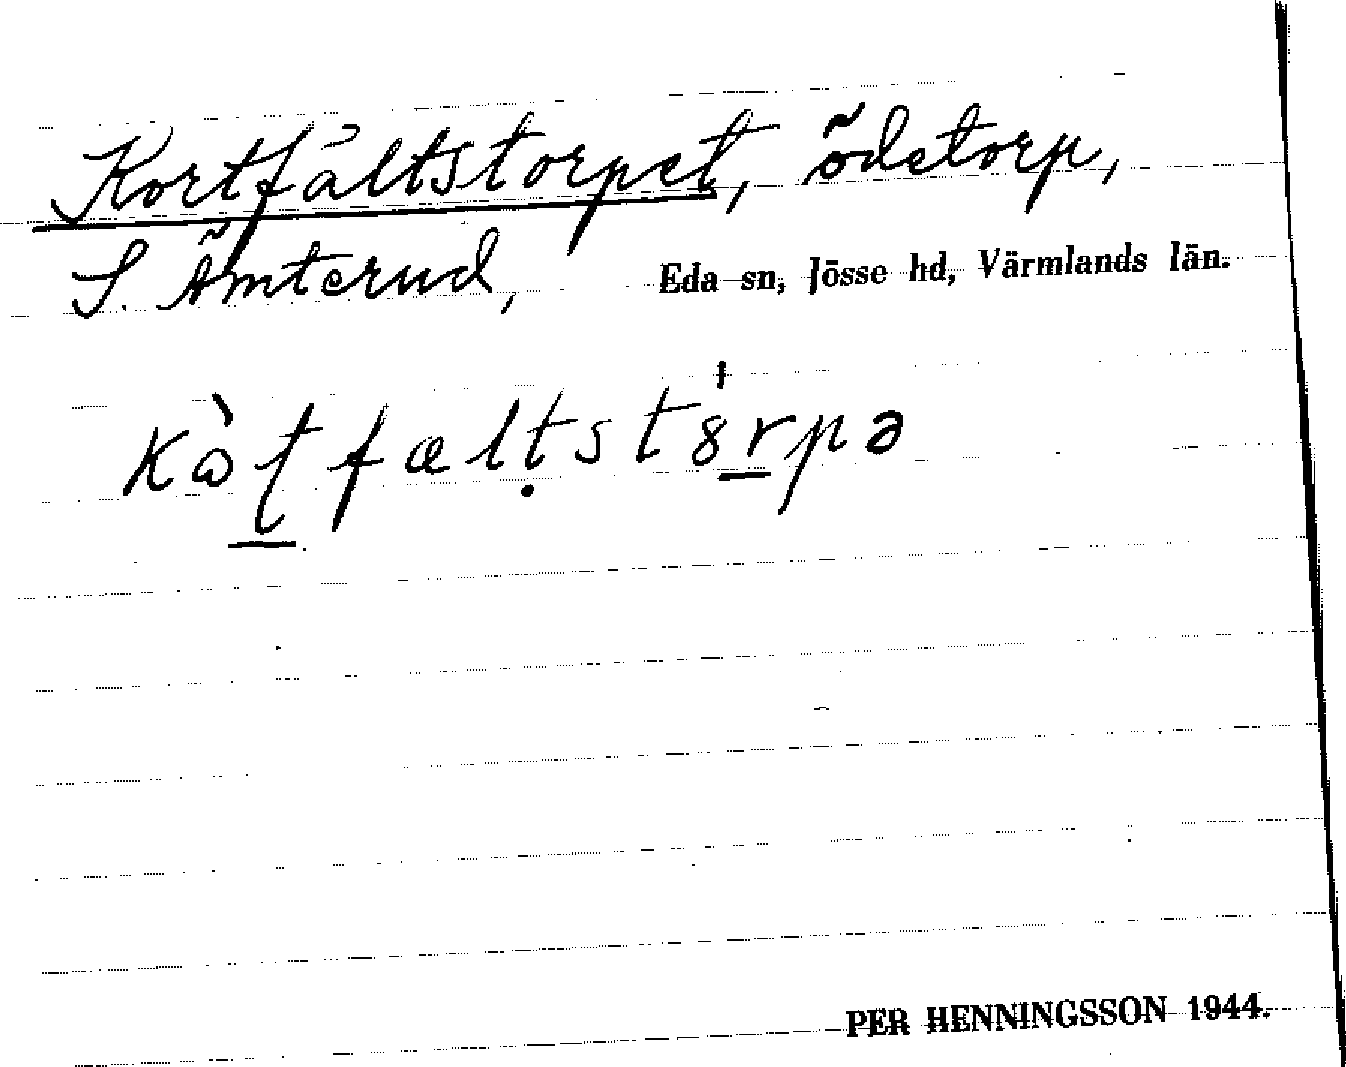 Kortfältstorpet, ödetorp,
S. Ämterud, Eda sn, Jösse hd, Värmlands län.
PER HENNINGSSON 1944.